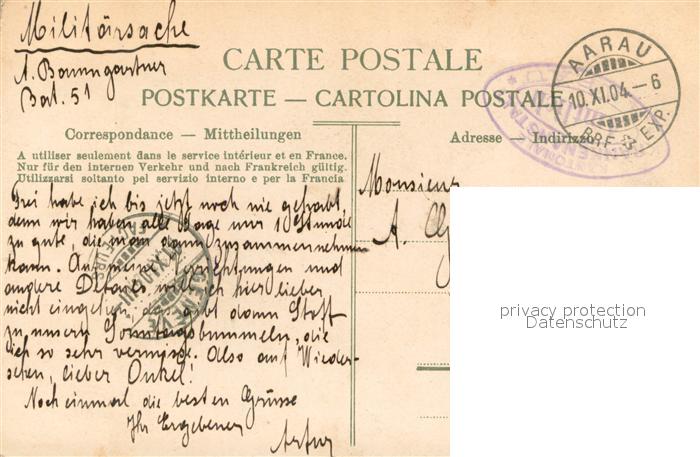 Militärsache
A. Baumgartner
Bat. 51
CARTE POSTALE
POSTKARTE — CARTOLINA POSTALE
AARAU
10.XI.04.–6
BRF. EXP.
Correspondance — Mittheilungen
Adresse — Indirizzo
A utiliser seulement dans le service intérieur et en France.
Nur für den internen Verkehr und nach Frankreich gültig.
Utilizzarsi soltanto pel servizio interno e per la Francia
Frei habe ich bis jetzt noch nie gehabt,
denn wir haben alle Tage nur 1 Stunde
zu gute, die man dann zusammennehmen
kann. Auf meine Verrichtungen und
andere Details will ich hier lieber
nicht eingehen, das gibt dann Stoff
zu unsern Sonntagsbummeln, die
ich so sehr vermisse. Also auf Wieder-
sehen, lieber Onkel!
Noch einmal die besten Grüsse
Ihr Ergebener
Arthur
Monsieur
A.
GENÈVE
privacy protection
Datenschutz